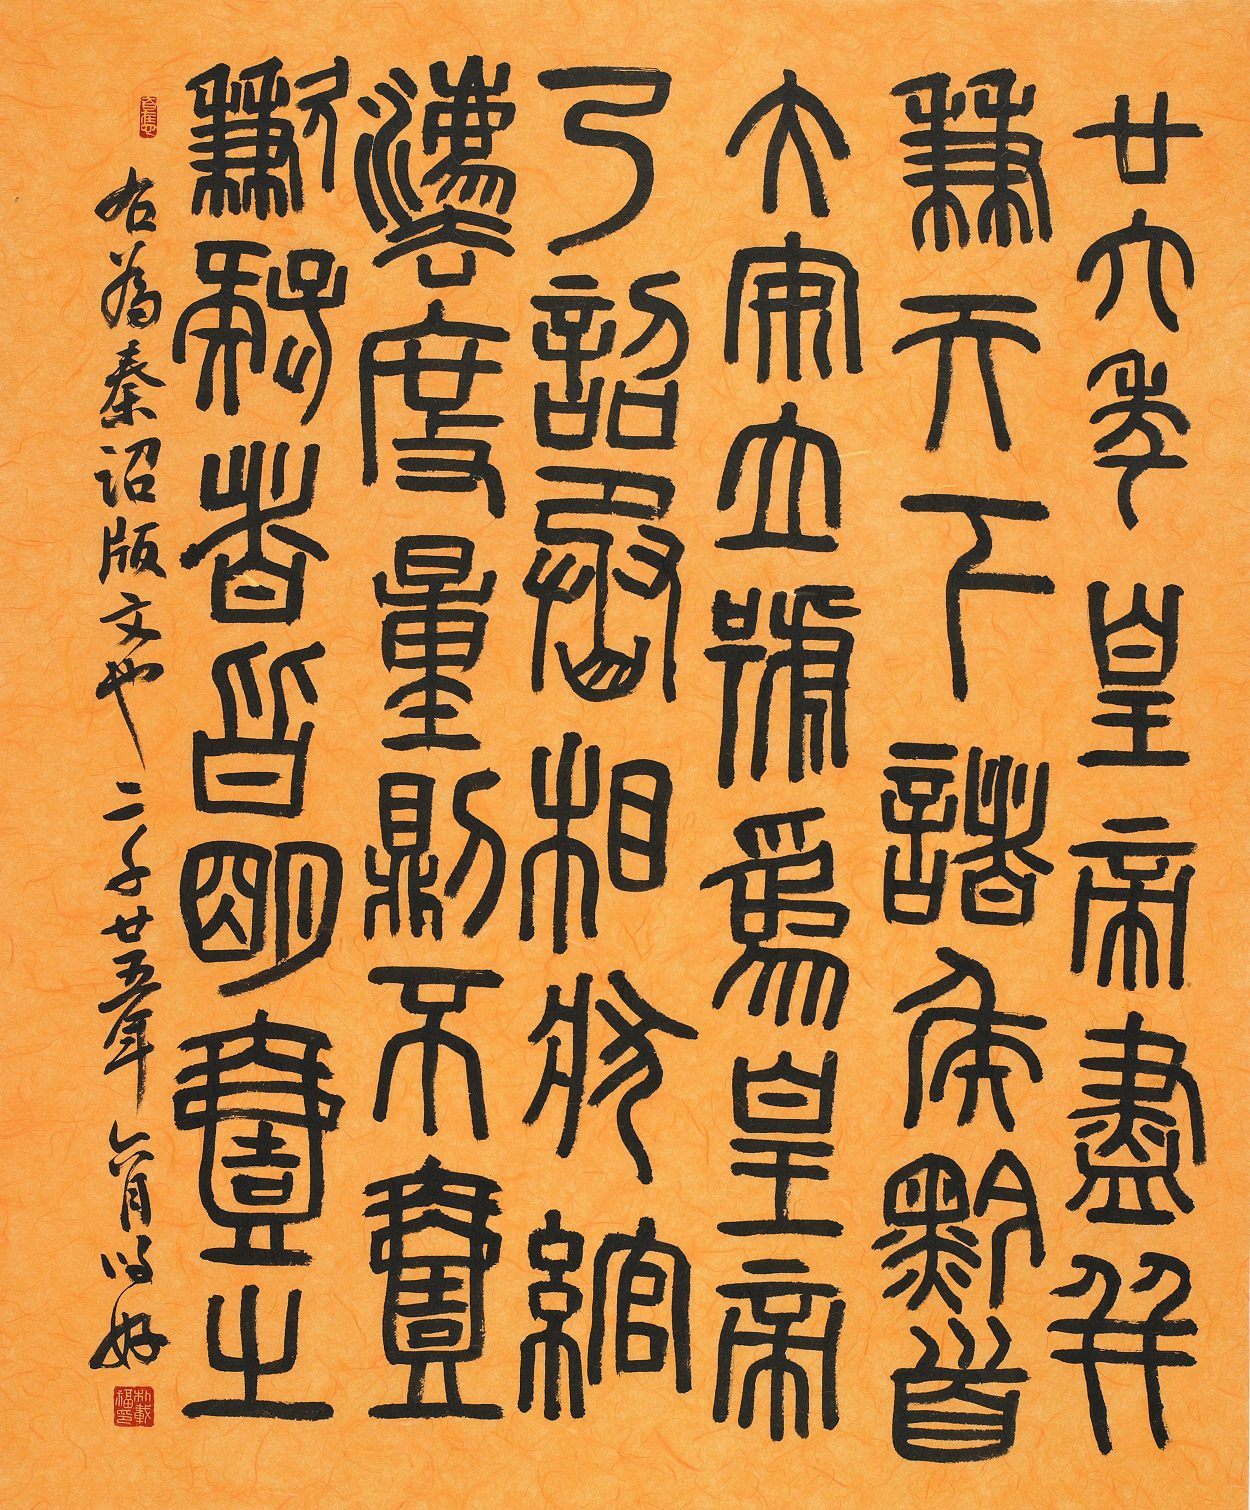 廿六年皇帝盡并
兼天下諸侯黔首
大安立號爲皇帝
乃詔丞相狀綰
灋度量則不壹
歉疑者皆明壹之
右為秦詔版文也二千廿五年六月好
朴載福印